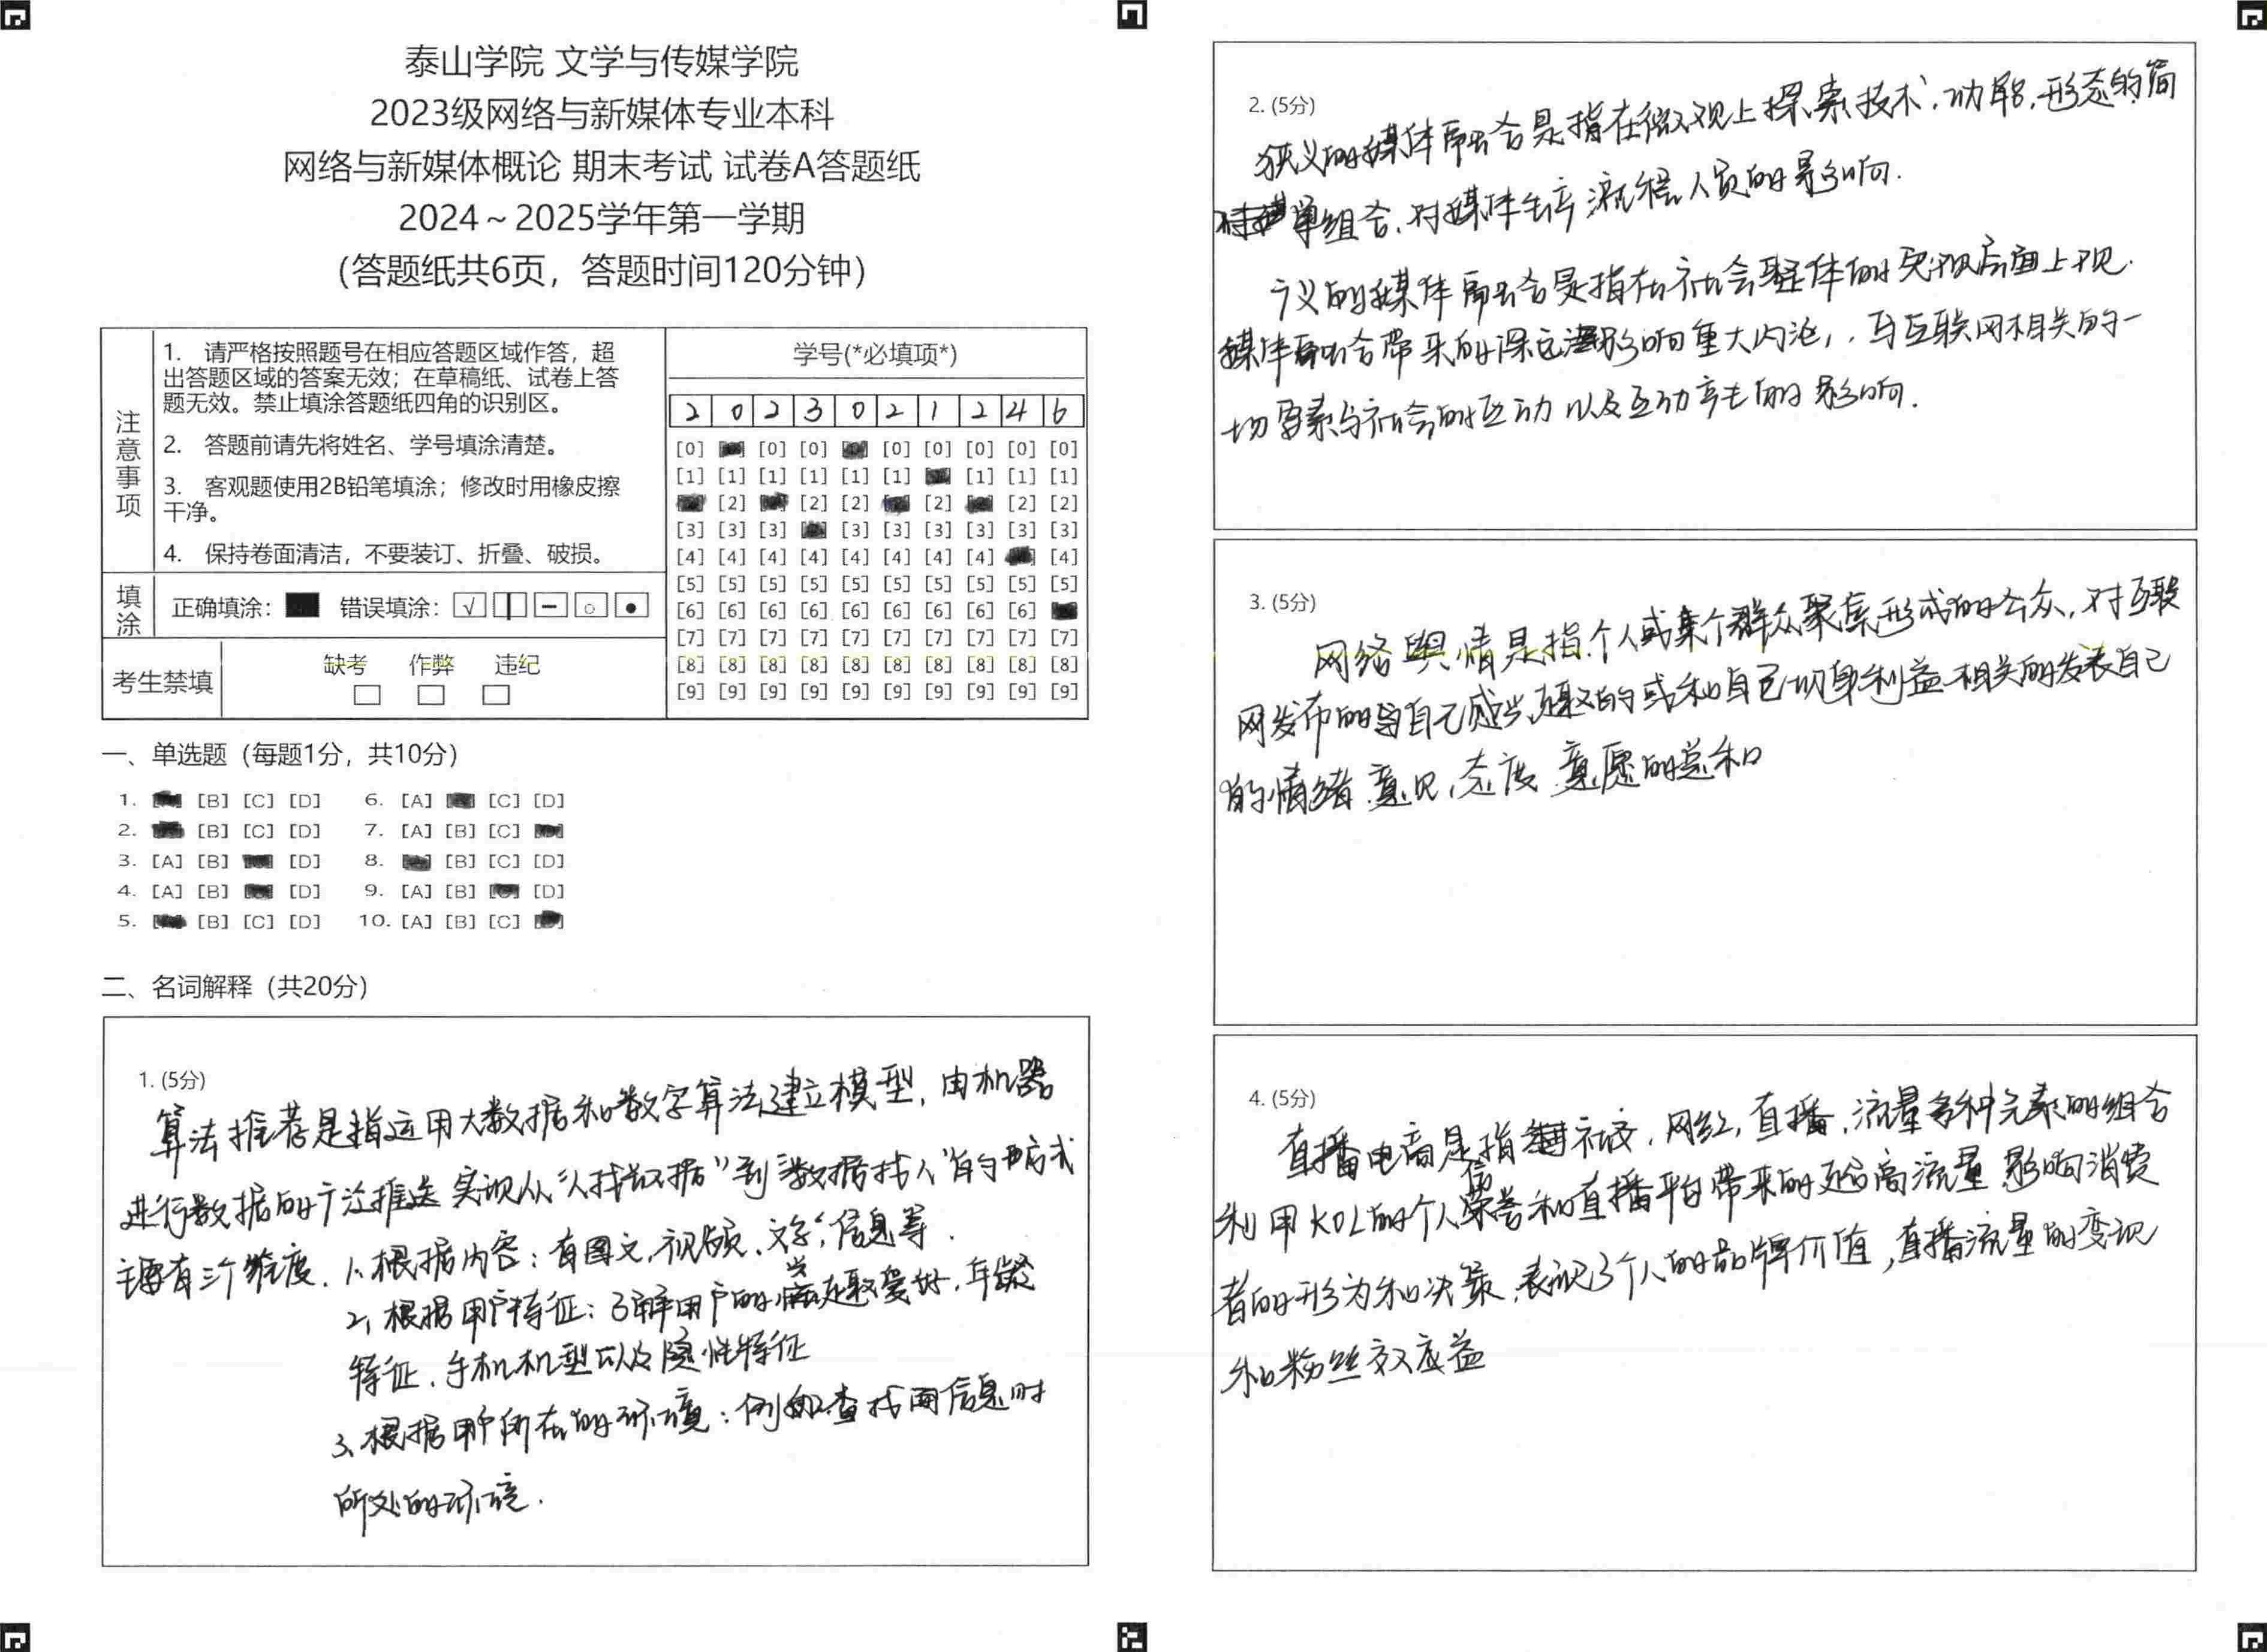 泰山学院 文学与传媒学院
2023级网络与新媒体专业本科
网络与新媒体概论 期末考试 试卷A答题纸
2024～2025学年第一学期
（答题纸共6页，答题时间120分钟）
注意事项
1. 请严格按照题号在相应答题区域作答，超
出答题区域的答案无效；在草稿纸、试卷上答
题无效。禁止填涂答题纸四角的识别区。
2. 答题前请先将姓名、学号填涂清楚。
3. 客观题使用2B铅笔填涂；修改时用橡皮擦
干净。
4. 保持卷面清洁，不要装订、折叠、破损。
填涂 正确填涂： 错误填涂：
考生禁填 缺考 作弊 违纪
学号(*必填项*)
2 0 2 3 0 2 1 2 4 6
[0] [0] [0] [0] [0] [0] [0] [0]
[1] [1] [1] [1] [1] [1] [1] [1] [1]
[2] [2] [2] [2] [2] [2]
[3] [3] [3] [3] [3] [3] [3] [3] [3]
[4] [4] [4] [4] [4] [4] [4] [4] [4]
[5] [5] [5] [5] [5] [5] [5] [5] [5] [5]
[6] [6] [6] [6] [6] [6] [6] [6] [6]
[7] [7] [7] [7] [7] [7] [7] [7] [7] [7]
[8] [8] [8] [8] [8] [8] [8] [8] [8] [8]
[9] [9] [9] [9] [9] [9] [9] [9] [9] [9]
一、单选题（每题1分，共10分）
1. [B] [C] [D] 6. [A] [C] [D]
2. [B] [C] [D] 7. [A] [B] [C]
3. [A] [B] [D] 8. [B] [C] [D]
4. [A] [B] [D] 9. [A] [B] [D]
5. [B] [C] [D] 10. [A] [B] [C]
二、名词解释（共20分）
1. (5分)
算法推荐是指运用大数据和数字算法建立模型，由机器
进行数据的广泛推送 实现从“人找数据”到“数据找人”的方式
主要有三个维度．1、根据内容：有图文、视频、文字、信息等．
2、根据用户特征：了解用户的兴趣爱好，年龄
特征、手机机型以及隐性特征
3、根据用户所在的环境：例如查找同信息时
所处的环境．
2. (5分)
狭义的媒体融合是指在微观上探索技术、功能、形态的简
单组合、对媒体生产流程人员的影响．
广义的媒体融合是指在社会整体的宏观层面上观．
媒体融合带来的深远影响重大内涵，与互联网相关的一
切要素与社会的互动以及互动产生的影响．
3. (5分)
网络舆情是指个人或某个群众聚集形成的公众，对互联
网发布的与自己感兴趣的或和自己切身利益相关的发表自己
的情绪、意见、态度、意愿的总和
4. (5分)
直播电商是指社交、网红、直播、流量多种元素的组合
利用KOL的个人信誉和直播平台带来的超高流量影响消费
者的形为和决策，表现了个人的品牌价值，直播流量的变现
和粉丝效应益